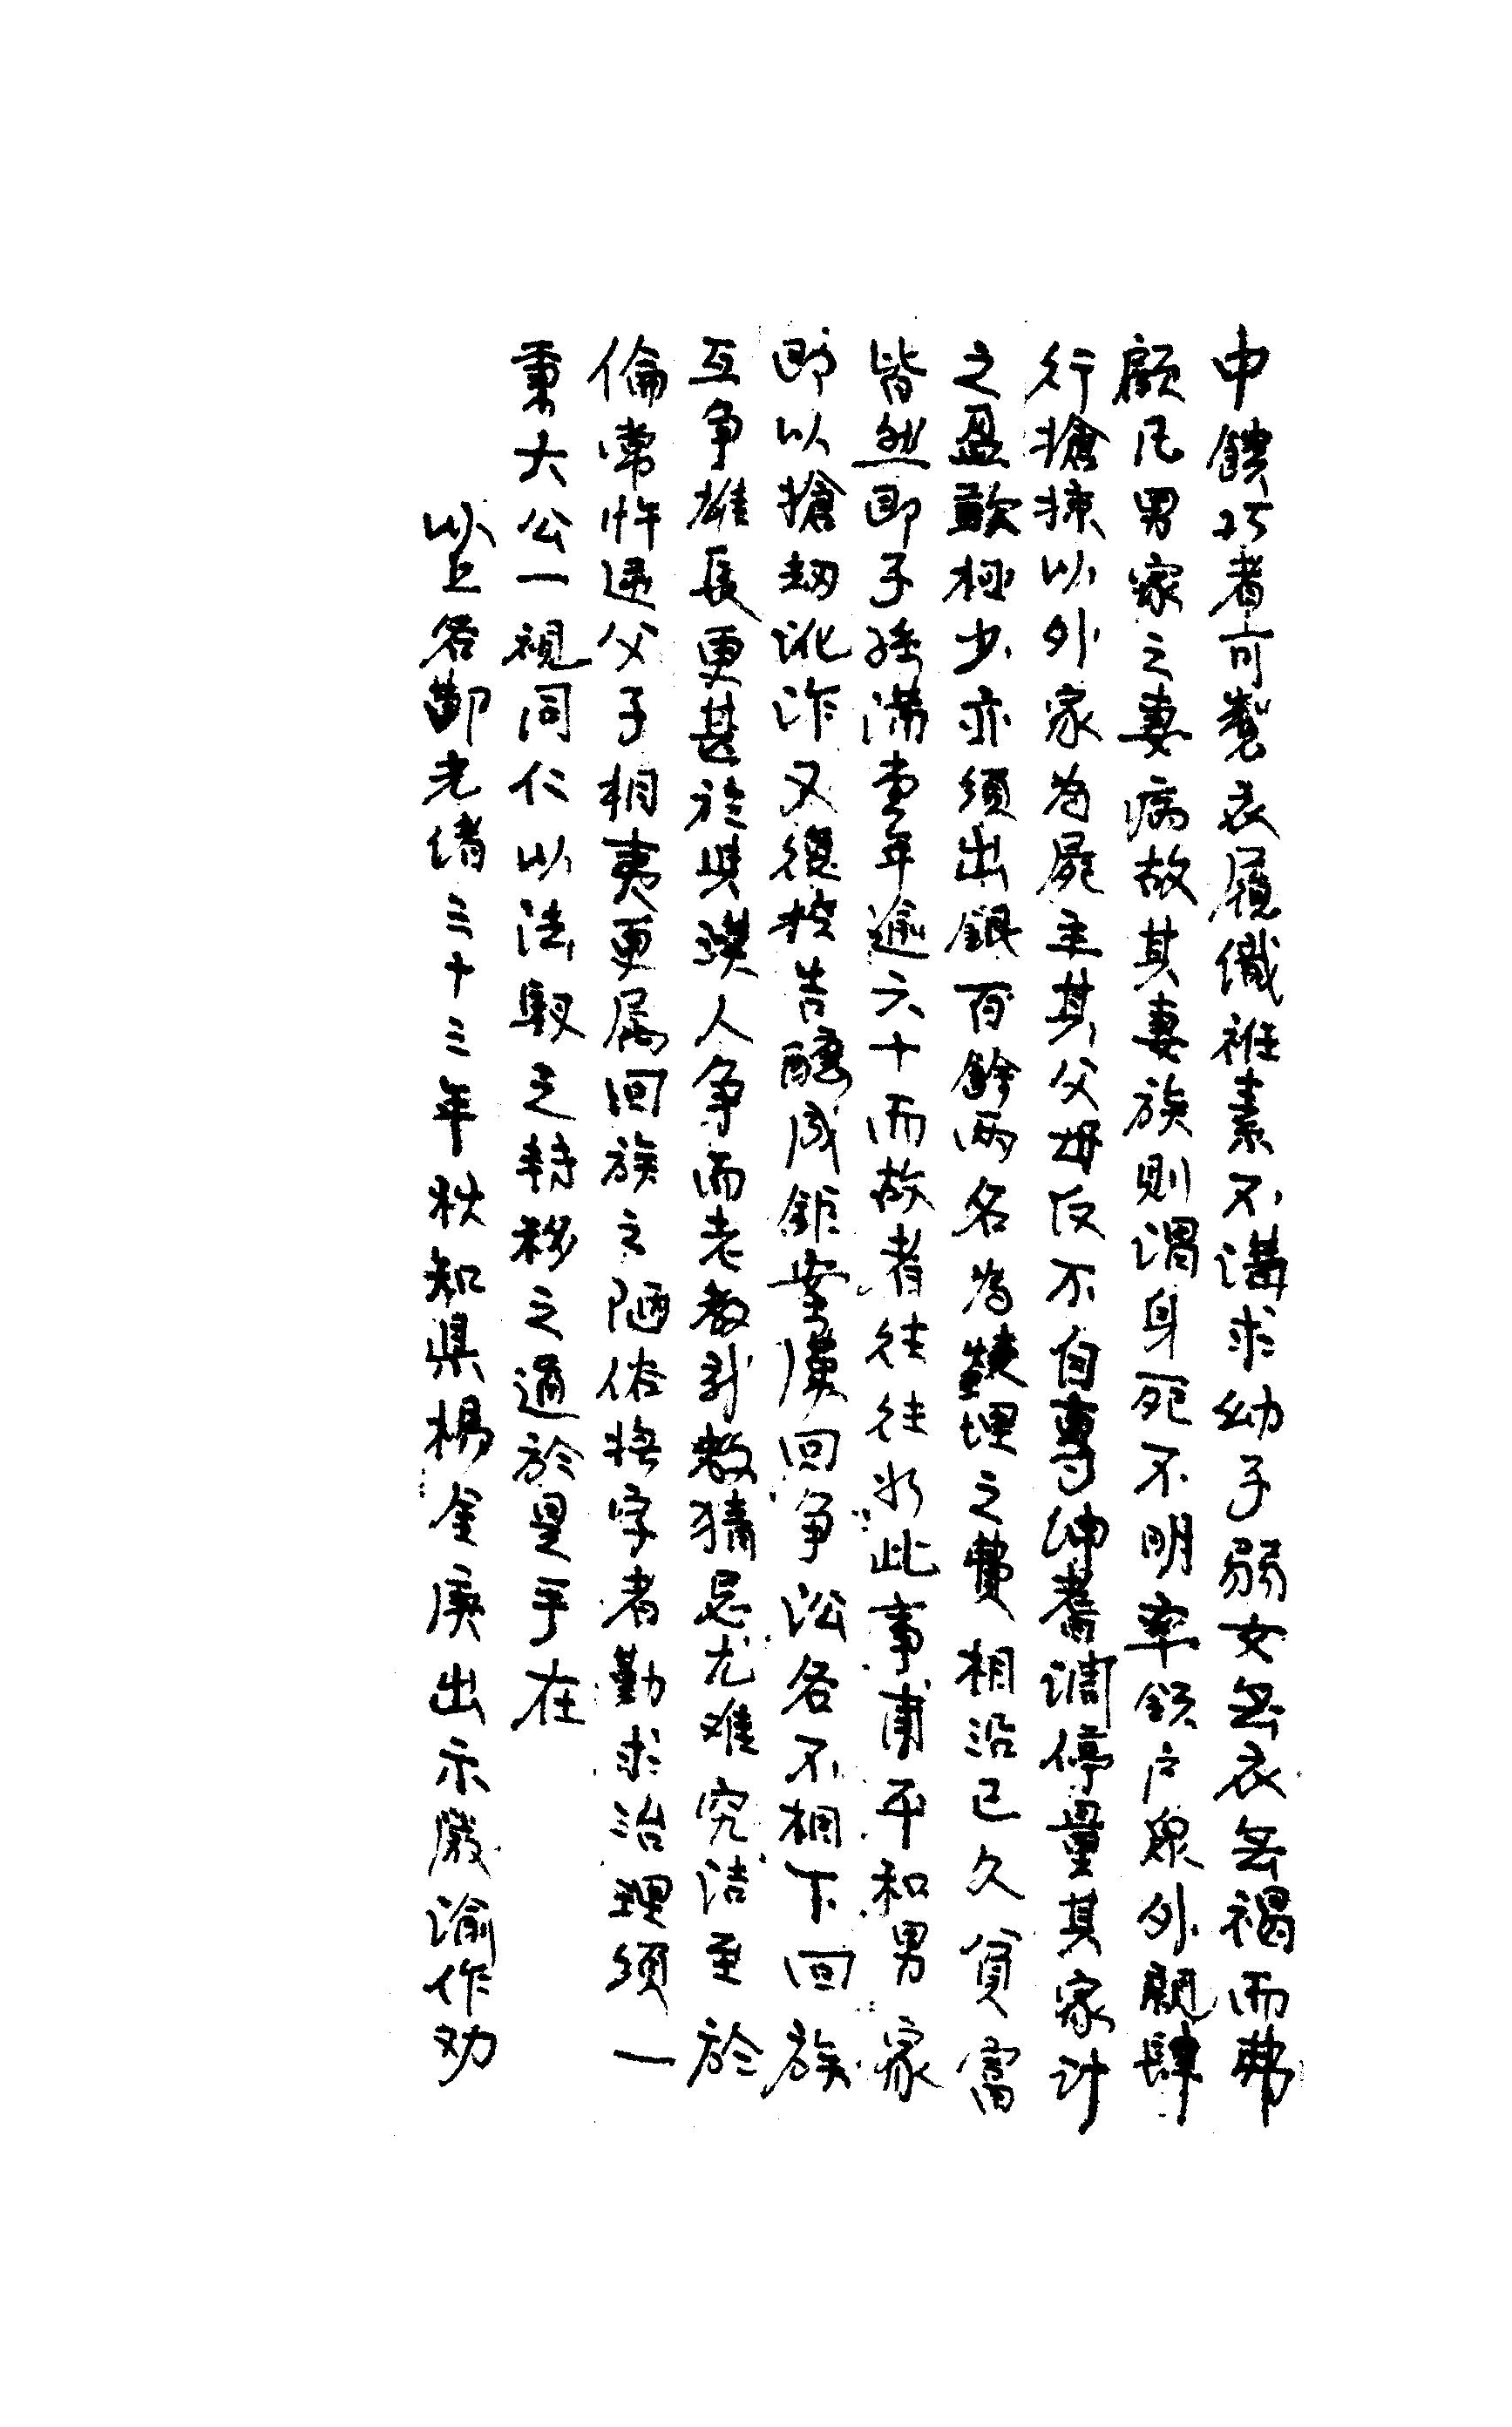 中饋巧者可製衣履織袵素不講求幼子弱女無衣無褐而弗
顧凡男家之妻病故其妻族則謂身死不明率領户眾外親肆
行搶掠以外家為屍主其父母反不自專紳耆調停量其家計
之盈歉極少亦須出銀百餘两名為塟埋之費相沿已久貧富
皆然即子孫满堂年逾六十而故者往往於此事甫平和男家
即以搶刼訛诈又復控告釀成鉅案漢回争讼各不相下回族
互争雄長更甚於與漢人争而老教新教猜忌尤难究洁至於
倫常忤逆父子相夷更属回族之陋俗將字者勤求治理须一
秉大公一視同仁以法馭之轉移之通於是乎在
以上各鄙光绪三十三年秋知県楊金庚出示嚴谕作劝